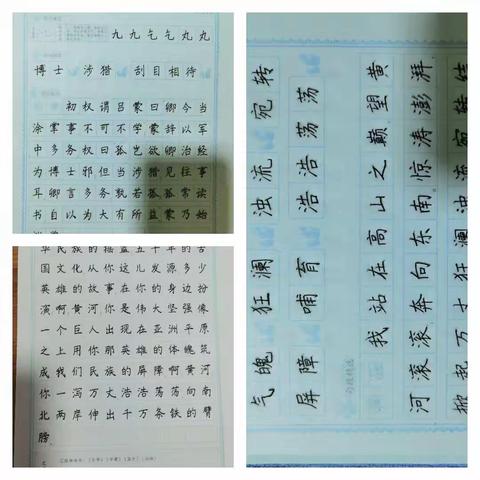 九九乞乞丸丸
博士 涉猎 刮目相待
初权谓吕蒙曰卿今当
涂掌事不可不学蒙辞以军
中多务权曰孤岂欲卿治经
为博士邪但当涉猎见往事
耳卿言多务孰若孤孤常读
书自以为大有所益蒙乃始
华民族的摇篮五千年的古
国文化从你这儿发源多少
英雄的故事在你的身边扮
演啊黄河你是伟大坚强像
一个巨人出现在亚洲平原
之上用你那英雄的体魄筑
成我们民族的屏障啊黄河
你一泻万丈浩浩荡荡向南
北两岸伸出千万条铁的臂
膀
气魄 狂澜 浊流 宛转
屏障 哺育 浩浩荡荡
句段精选
我站在高山之巅望黄
河滚滚奔向东南惊涛澎湃
掀起万丈狂澜浊流宛转结